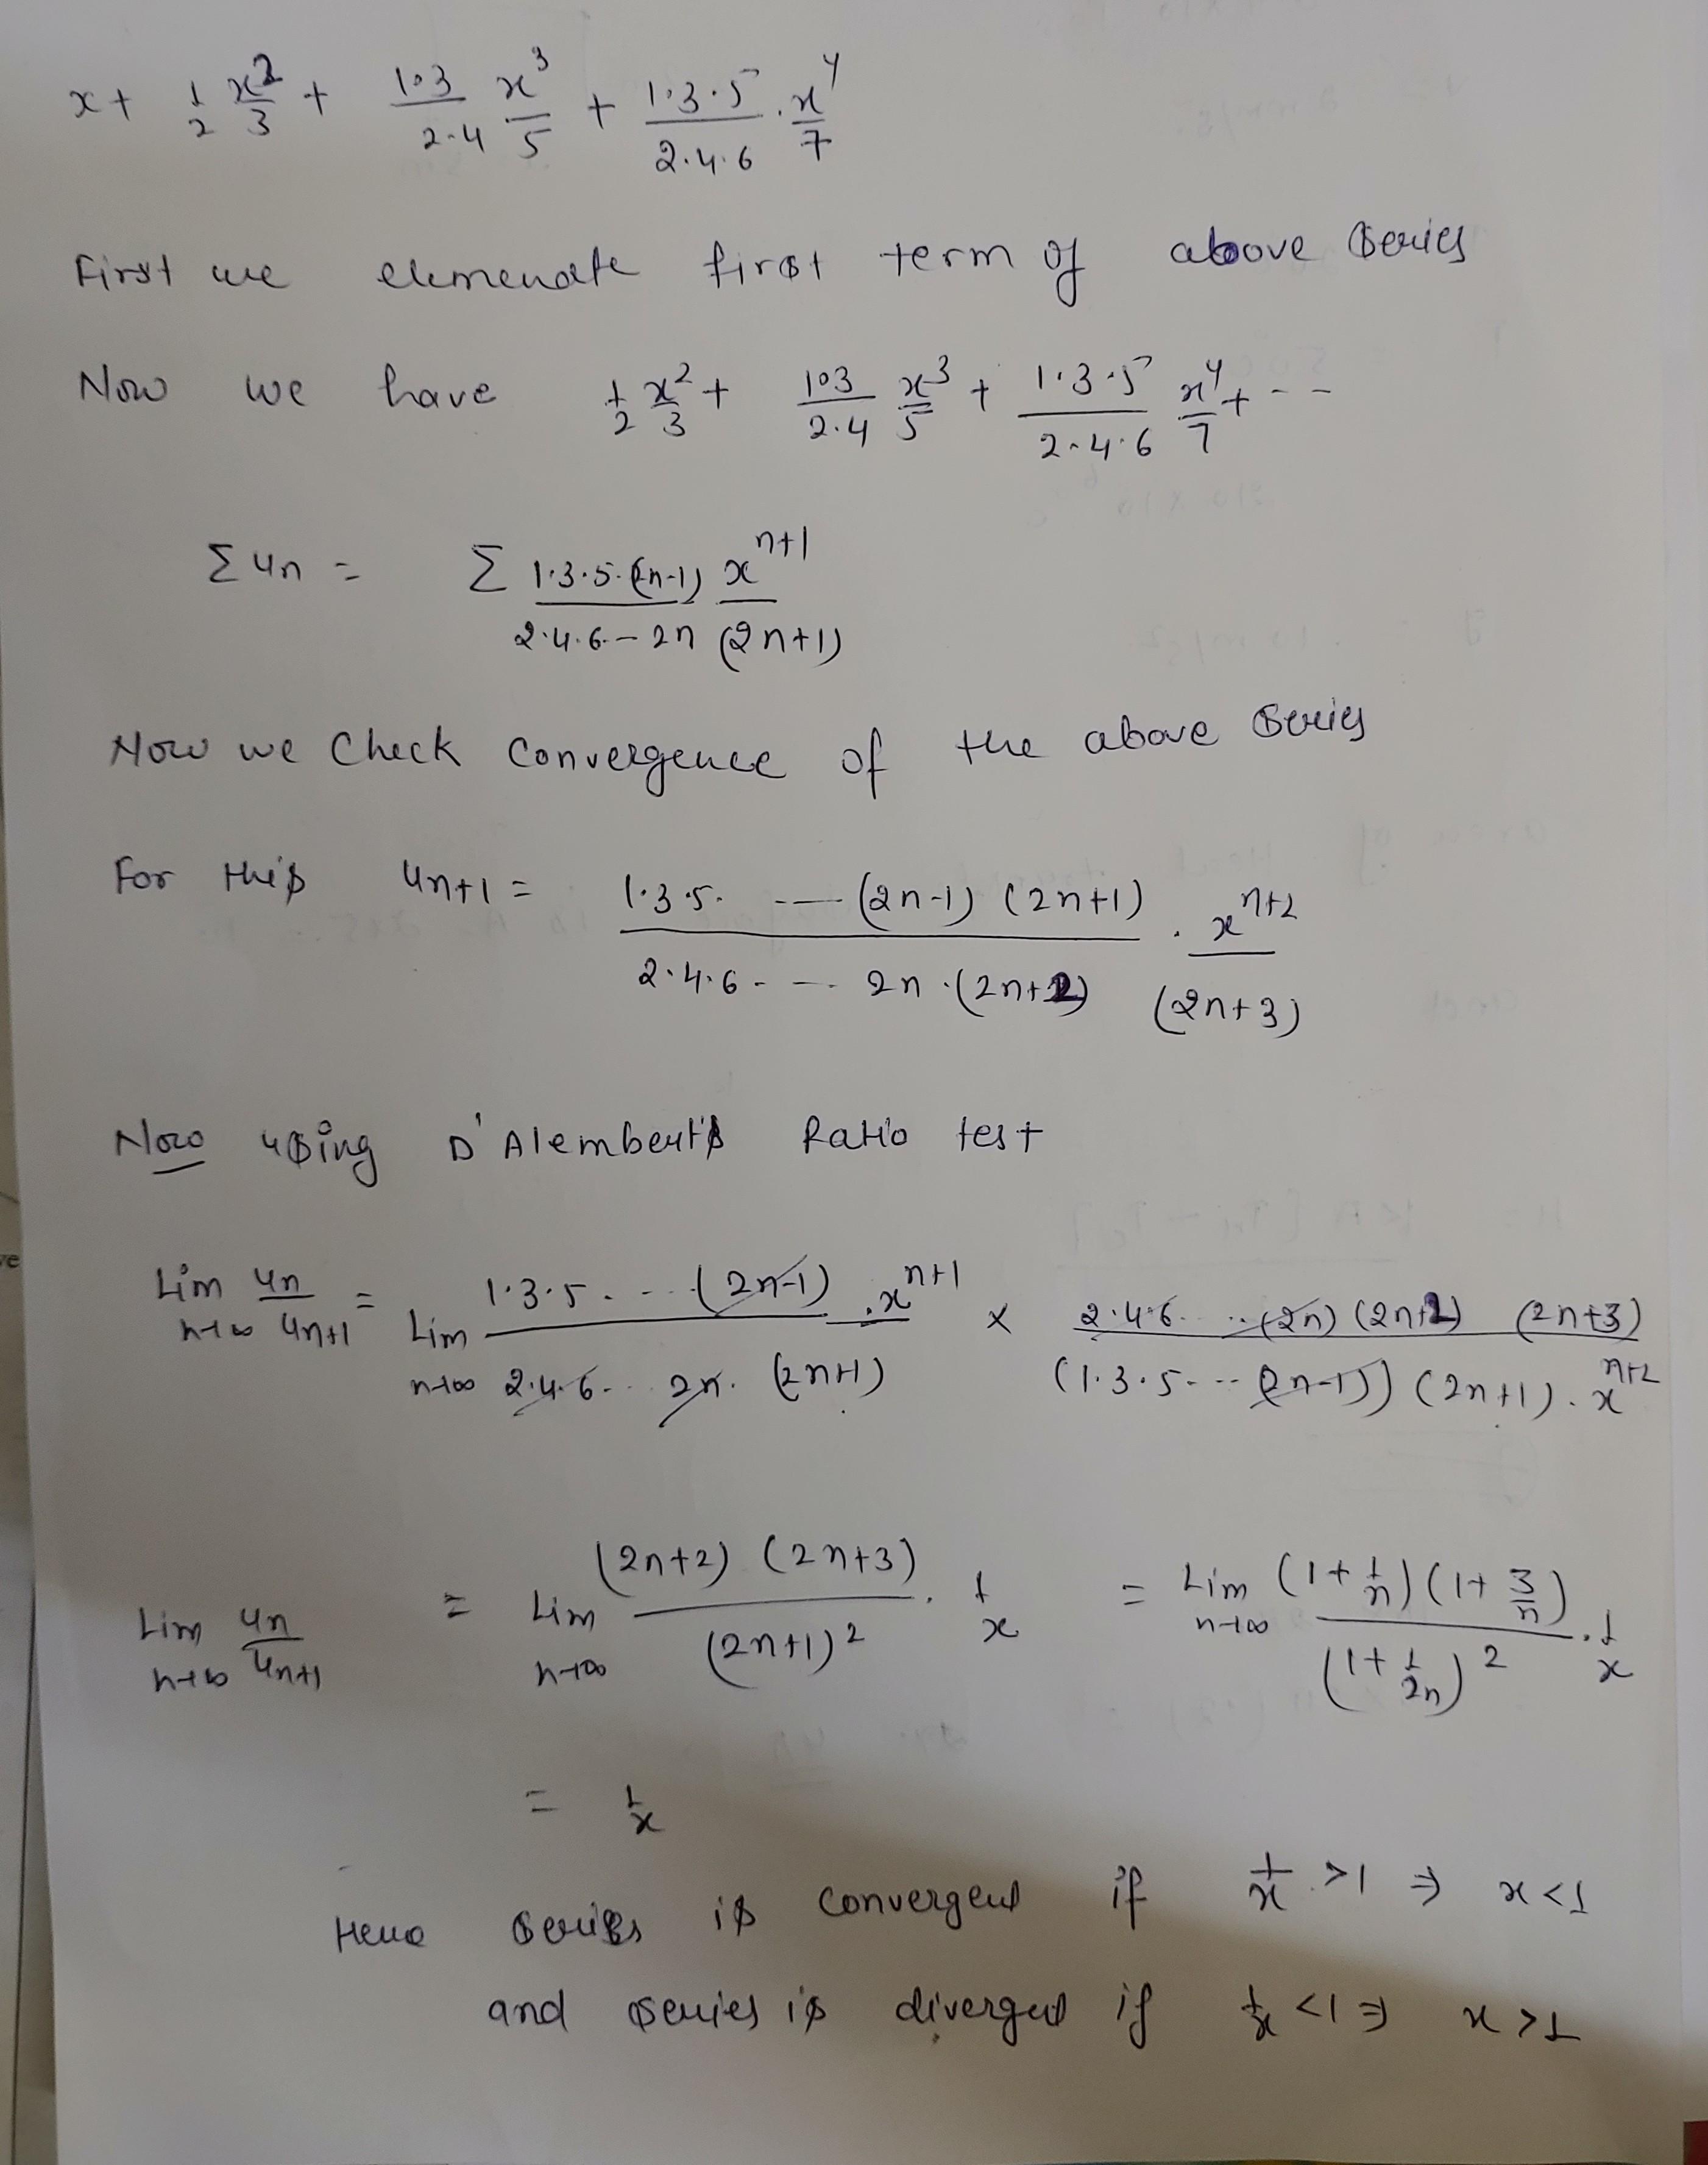 x + 1/2 x²/3 + 1·3/2·4 x³/5 + 1·3·5/2·4·6 · x⁴/7
First we elemenate first term of above series
Now we have 1/2 x²/3 + 1·3/2·4 x³/5 + 1·3·5/2·4·6 x⁴/7 + - -
Σ un = Σ 1·3·5·(2n-1)/2·4·6·-2n x^(n+1)/(2n+1)
Now we Check Convergence of the above series
For this un+1 = 1·3·5· ---- (2n-1) (2n+1)/2·4·6 - --- 2n·(2n+2) · x^(n+2)/(2n+3)
Now using D'Alembert's Ratio test
Lim n→∞ un/un+1 = Lim n→∞ 1·3·5· - -- (2n-1) · x^(n+1)/2·4·6 - .. 2n· (2n+1) × 2·4·6· ... (2n) (2n+2) (2n+3)/(1·3·5 - -- (2n-1)) (2n+1) · x^(n+2)
Lim n→∞ un/un+1 = Lim n→∞ (2n+2) (2n+3)/(2n+1)² · 1/x = Lim n→∞ (1+1/n) (1+3/n)/(1+1/2n)² · 1/x
= 1/x
Hence series is convergent if 1/x > 1 ⇒ x < 1
and series is divergent if 1/x < 1 ⇒ x > 1